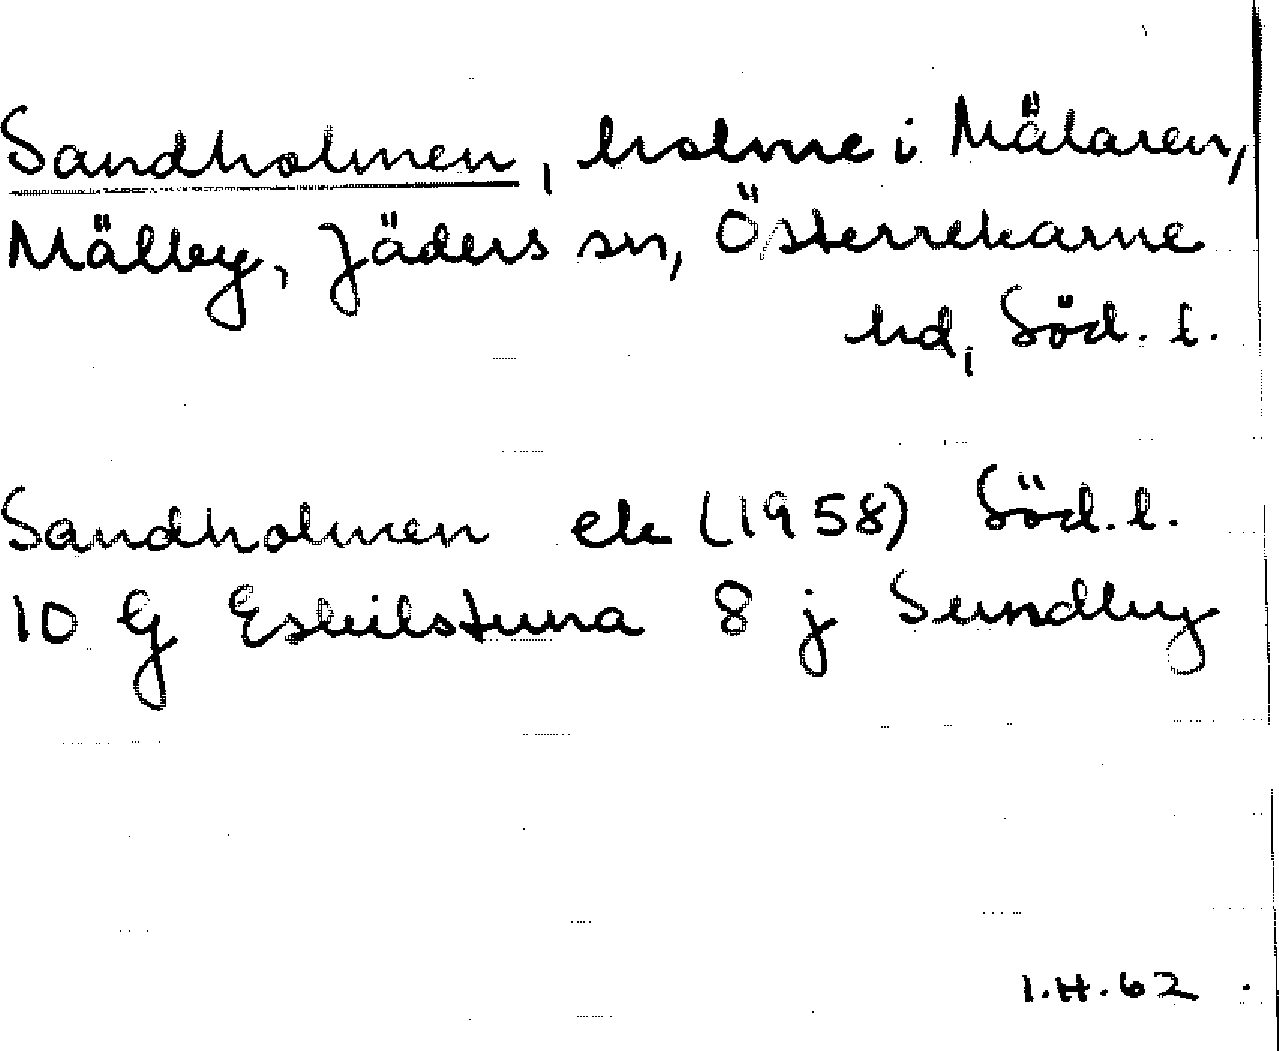 Sandholmen, holme i Mälaren,
Mälby, Jäders sn, Österrekarne
hd, Söd. l.
Sandholmen ek (1958) Söd. l.
10 G Eskilstuna 8 j Sundby
I.H. 62